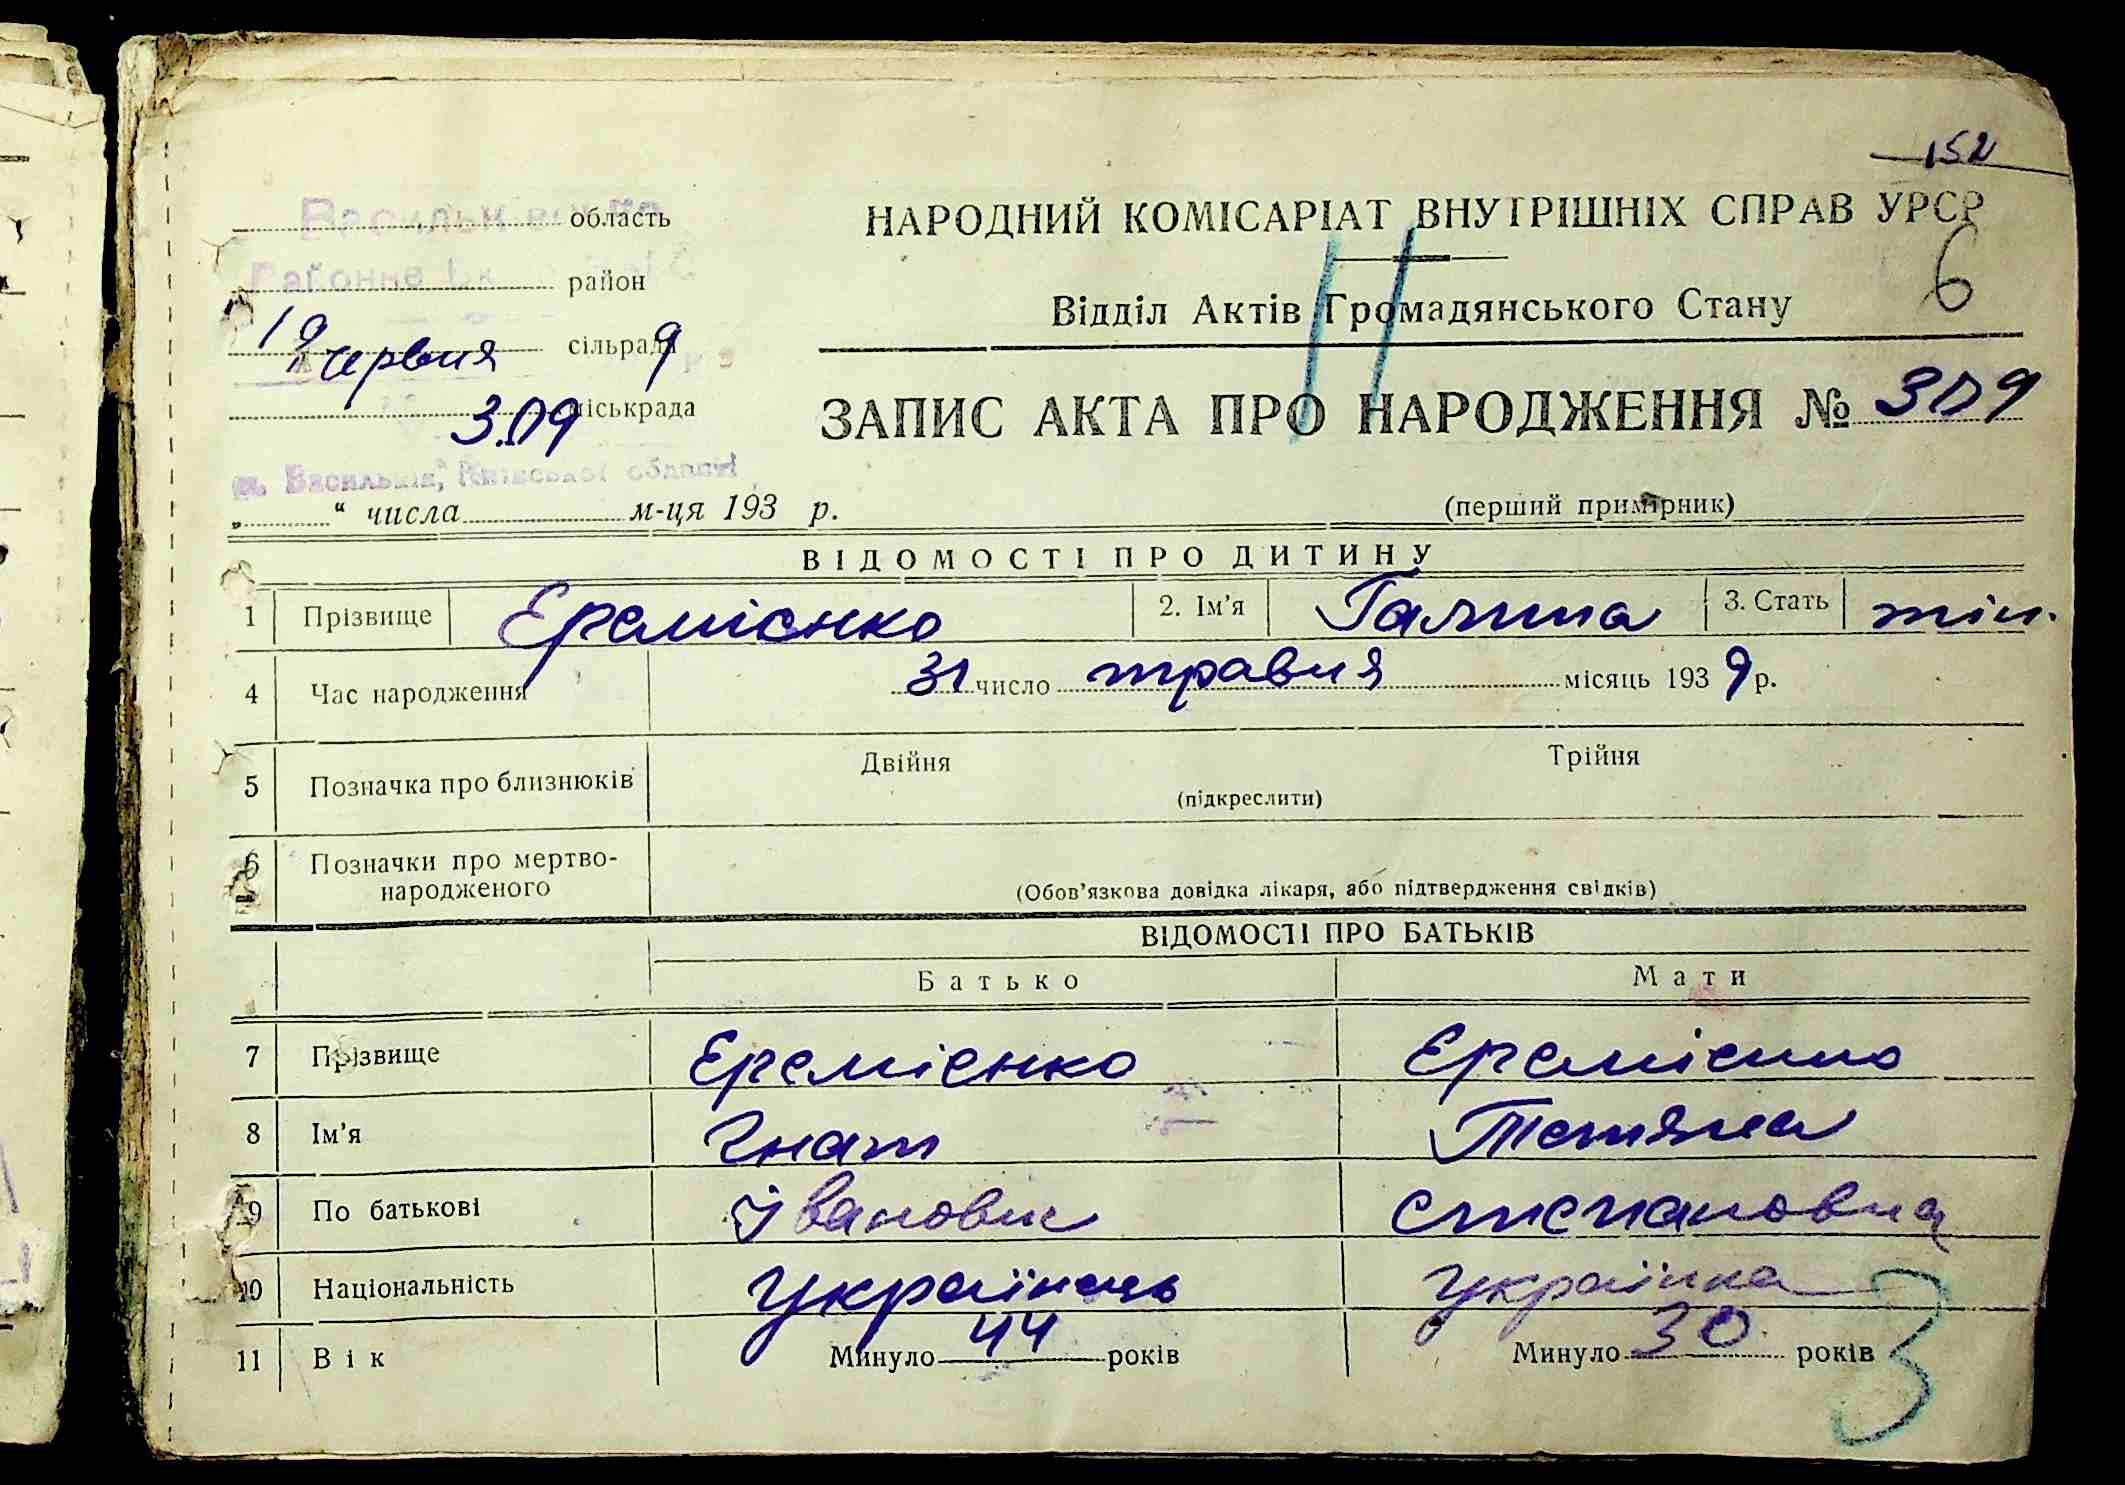 152
область
НАРОДНИЙ КОМІСАРІАТ ВНУТРІШНІХ СПРАВ УРСР
Районне
район
6
Відділ Актів Громадянського Стану
19 червня 9 сільрада
3.09 міськрада
ЗАПИС АКТА ПРО НАРОДЖЕННЯ № 309
м. Васильків, Київської області
„ “ числа м-ця 193 р.
(перший примірник)
ВІДОМОСТІ ПРО ДИТИНУ
1 Прізвище Еремієнко 2. Ім'я Галина 3. Стать жін.
4 Час народження 31 число травня місяць 1939 р.
5 Позначка про близнюків Двійня Трійня
(підкреслити)
6 Позначки про мертво-
народженого
(Обов'язкова довідка лікаря, або підтвердження свідків)
ВІДОМОСТІ ПРО БАТЬКІВ
Батько Мати
7 Прізвище Еремієнко Еремієнко
8 Ім'я Гнат Тетяна
9 По батькові Іванович Степановна
10 Національність Українець Українка
11 Вік Минуло 44 років Минуло 30 років
3